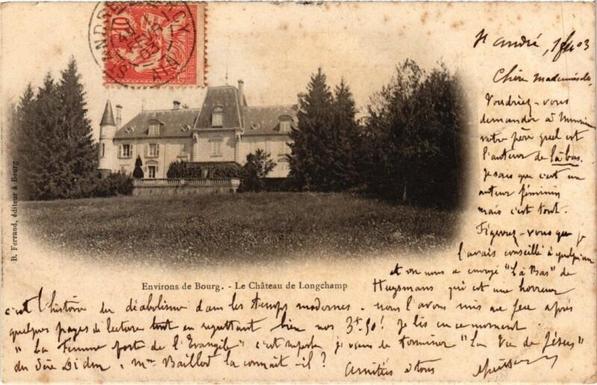 St André, 1903
Chère mademoiselle
Voudriez-vous
demander à
votre père quel est
l'auteur de là bas.
Je sais que c'est un
auteur féminin
mais c'est tout.
Figurez-vous que je
l'avais conseillé à quelqu'un
et on nous a envoyé "Là Bas" de
Huysmans qui est une horreur
B. Ferrand, éditeur à Bourg
Environs de Bourg. - Le Château de Longchamp
c'est l'histoire du diabolisme dans les temps modernes. nous l'avons mis au feu après
quelques pages de lecture tout en regrettant bien nos 3f.50! Je lis en ce moment
"La Femme forte de l'Evangile" c'est superbe je viens de terminer "La Vie de Jésus"
du Père Didon, Mr Baillod la connaît-il?
Amitiés à tous